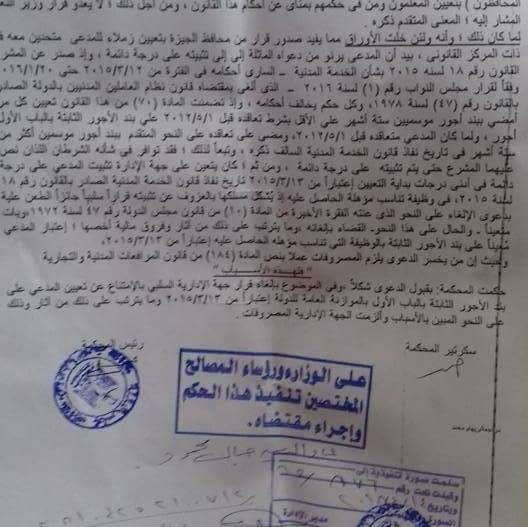 المحافظون ) بتعيين المعلمون ومن فى حكمهم بمنأى عن أحكام هذا القانون ، ومن أجل ذلك ؛ لا يعدو قرار وزير
المشار إليه ؛ المعنى المتقدم ذكره .
لما كان ذلك ؛ وأنه ولئن خلت الأوراق مما يفيد صدور قرار من محافظ الجيزة بتعيين زملاء للمدعى متحدين معه فى
ذات المركز القانونى ، بيد أن المدعى يرنو من دعواه الماثلة إلى إلى تثبيته على درجة دائمة ، وإذ صدر عن المشرع
القانون رقم ١٨ لسنه ٢٠١٥ بشأن الخدمة المدنية ـ السارى أحكامه فى الفترة من ٢٠١٥/٣/١٢ حتى ٢٠١٦/١/٢٠
وفقاً لقرار مجلس النواب رقم (١) لسنة ٢٠١٦ ـ الذى ألغى بمقتضاه قانون نظام العاملين المدنيين بالدولة الصادر
بالقانون رقم (٤٧) لسنة ١٩٧٨ ، وكل حكم يخالف أحكامه ، وإذ تضمنت المادة (٧٠) من هذا القانون تعيين كل من
أمضى ببند أجور موسميين ستة أشهر على الأقل بشرط تعاقده قبل ٢٠١٢/٥/١ على بند الأجور الثابتة بالباب الأول
أجور ، ولما كان المدعى متعاقده قبل ٢٠١٢/٥/١ ، ومضى على تعاقده على النحو المتقدم ببند أجور موسميين أكثر من
ستة أشهر فى تاريخ نفاذ قانون الخدمة المدنية السالف ذكره ، وتبعاً لذلك ؛ فقد توافر فى شأنه الشرطان اللذان نص
عليهما المشرع حتى يتم تثبيته على درجة دائمة ، ومن ثم ؛ كان يتعين على جهة الإدارة تثبيت المدعى على درجة
دائمة فى أدنى درجات بداية التعيين إعتباراً من ٢٠١٥/٣/١٣ تاريخ نفاذ قانون الخدمة المدنية الصادر بالقانون رقم ١٨
لسنة ٢٠١٥ ، فى وظيفة تناسب مؤهله الحاصل عليه إذ يشكل مسلكها بالعزوف عن تثبيته قراراً سلبياً جائزاً الطعن عليه
بدعوى الإلغاء على النحو الذى عنته الفقرة الأخيرة من المادة (١٠) من قانون مجلس الدولة رقم ٤٧ لسنة ١٩٧٢ ، وبات
متعيناً ـ والحال على هذا النحو ـ القضاء بإلغائه ، وما يترتب على ذلك من آثار وفروق مالية أخصها ؛ إعتبار المدعى
معيناً على بند الأجور الثابتة بالوظيفة التى تناسب مؤهله الحاصل عليه إعتباراً من ٢٠١٥/٣/١٣ .
وحيث إن من يخسر الدعوى يلزم المصروفات عملا بنص المادة (١٨٤) من قانون المرافعات المدنية والتجارية
" فلهذه الأسباب "
حكمت المحكمة : بقبول الدعوى شكلاً ، وفى الموضوع بإلغاء قرار جهة الإدارية السلبى بالإمتناع عن تعيين المدعى على
بند الأجور الثابتة بالباب الأول بالموازنة العامة للدولة إعتباراً من ٢٠١٥/٣/١٣ وما يترتب على ذلك من آثار وذلك
على النحو المبين بالأسباب وألزمت الجهة الإدارية المصروفات .
سكرتير المحكمة رئيس المحكمة
على الوزاره ورؤساء المصالح
المختصين تنفيذ هذا الحكم
وإجراء مقتضاه .
سلمت صورة تنفيذية إلى
وقيدت تحت رقم
وبتاريخ
مدير الإدارة